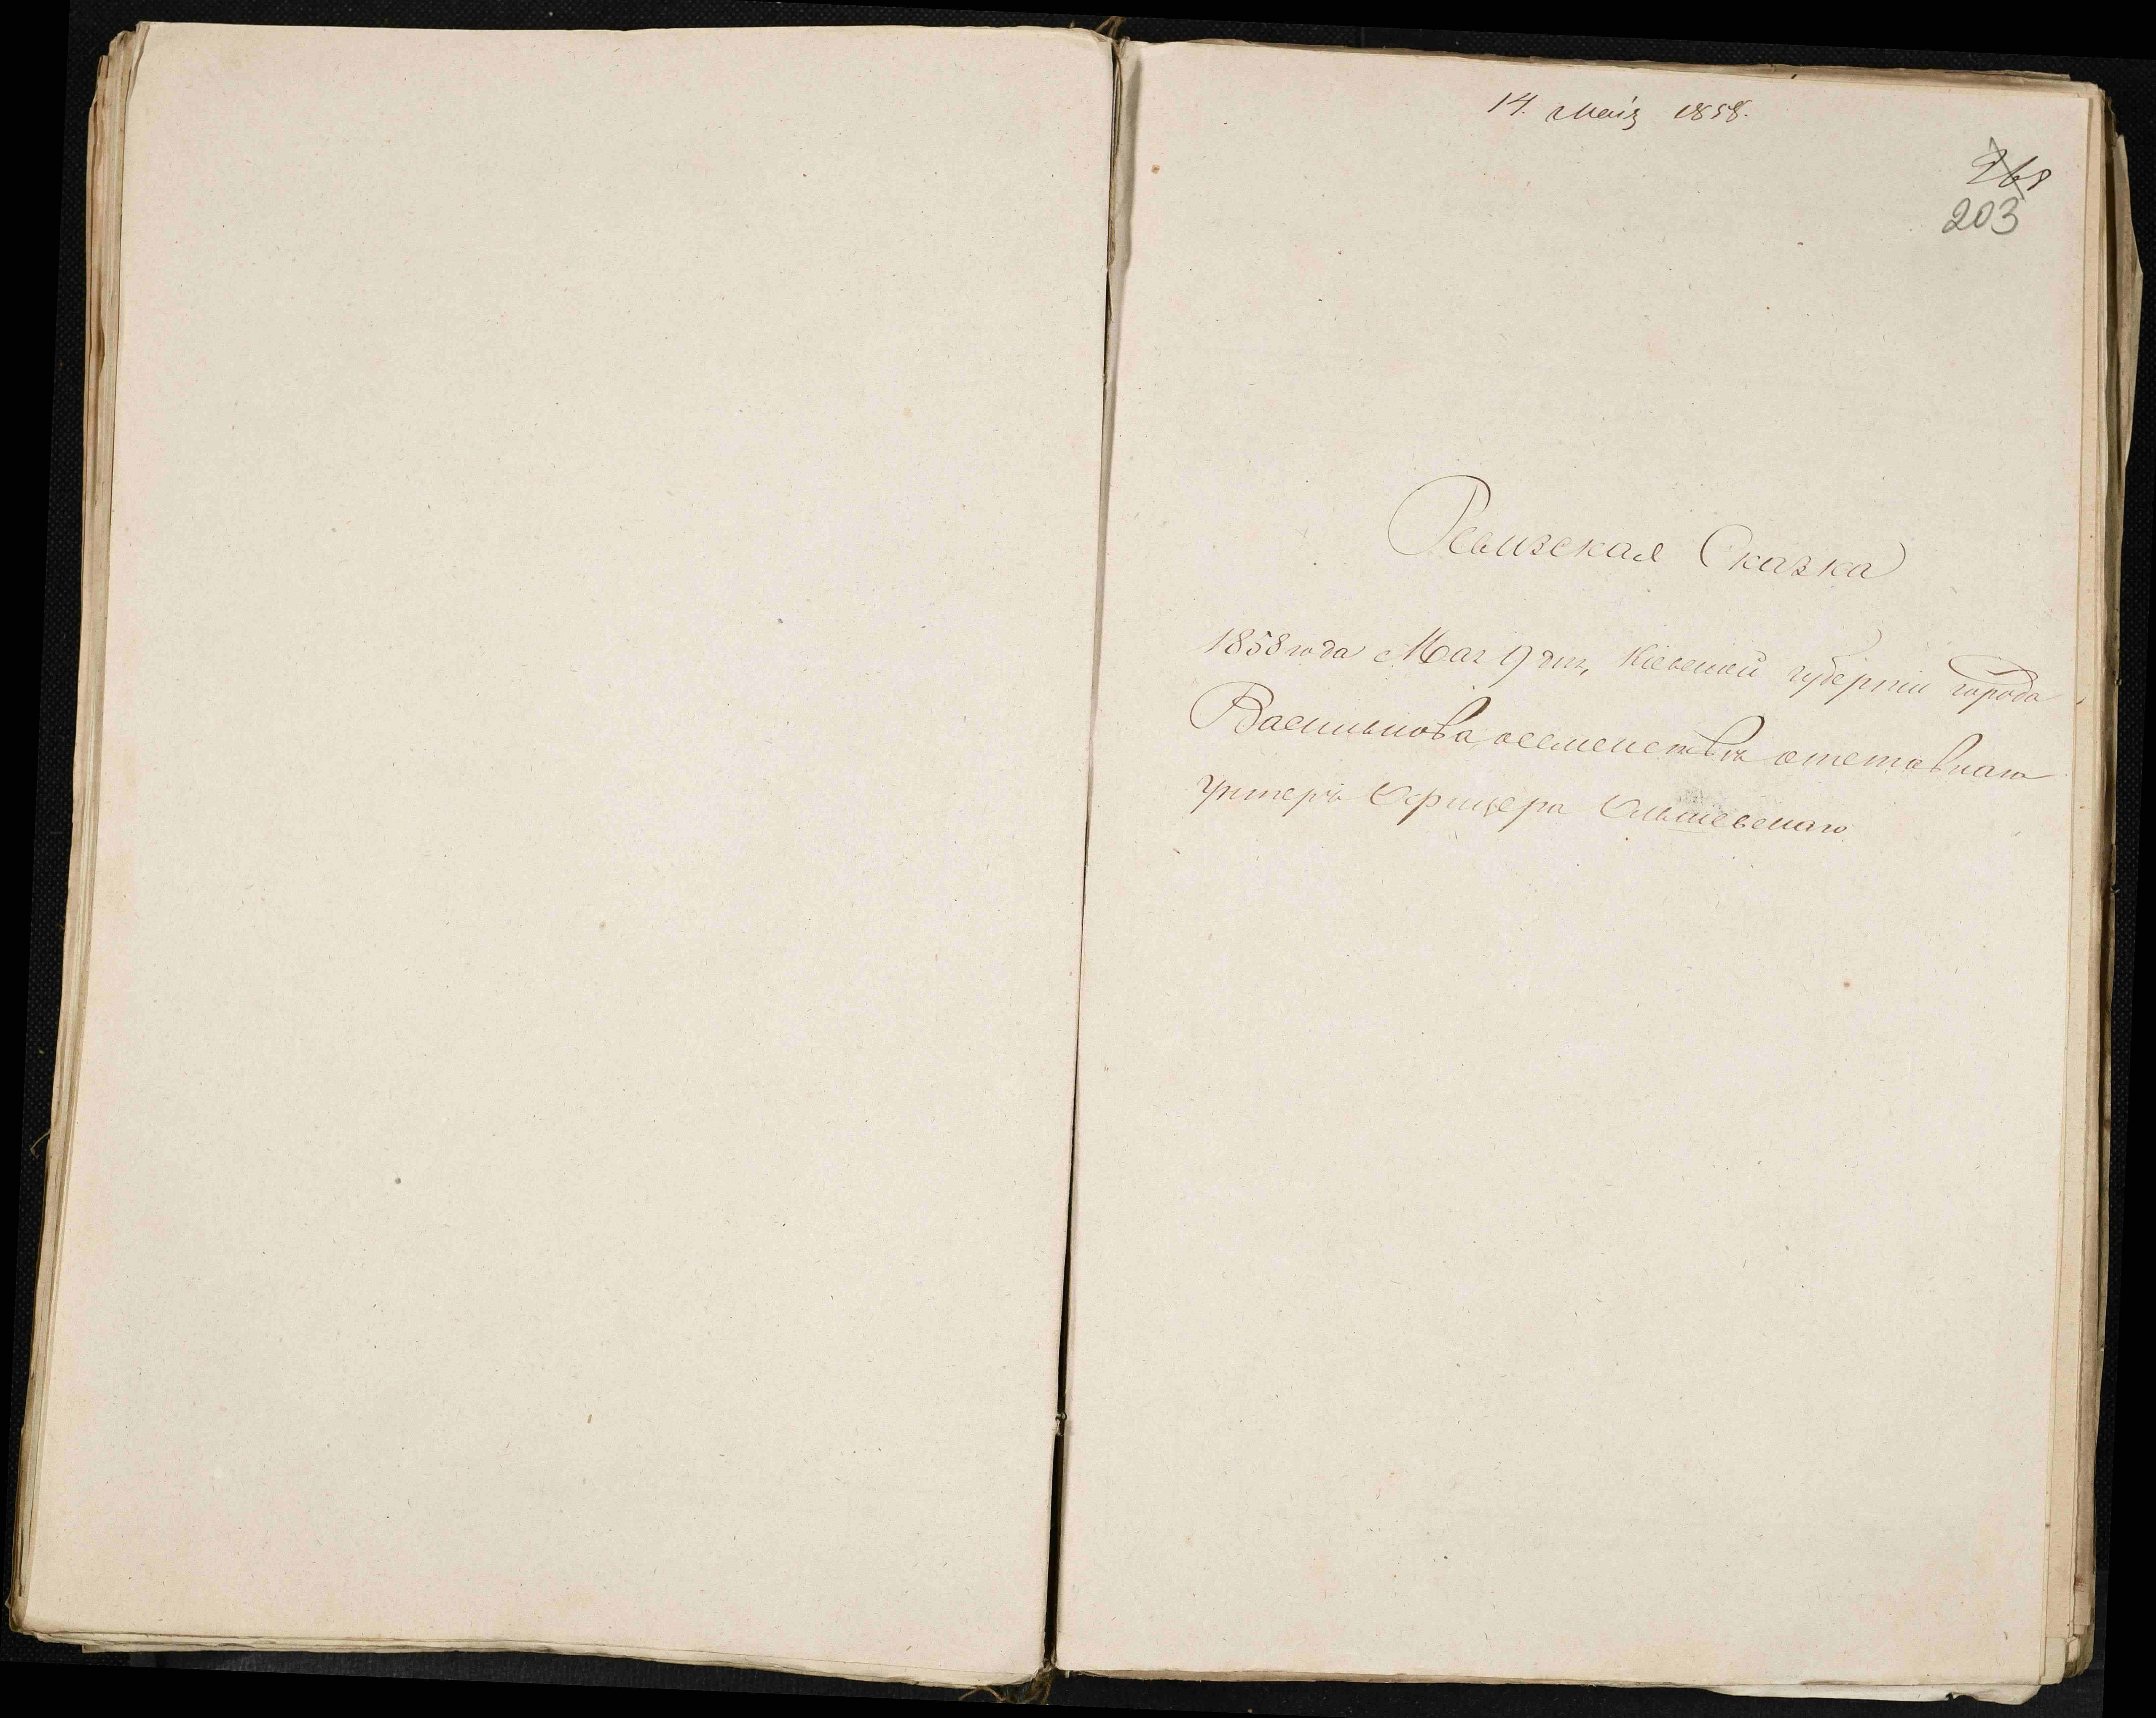 14. Маія 1858.
268
203
Ревизская Сказка
1858 года Мая 9 дня, Кіевской губерніи города
Василькова о семействѣ отставнаго
Унтеръ Офицера Ольшевскаго